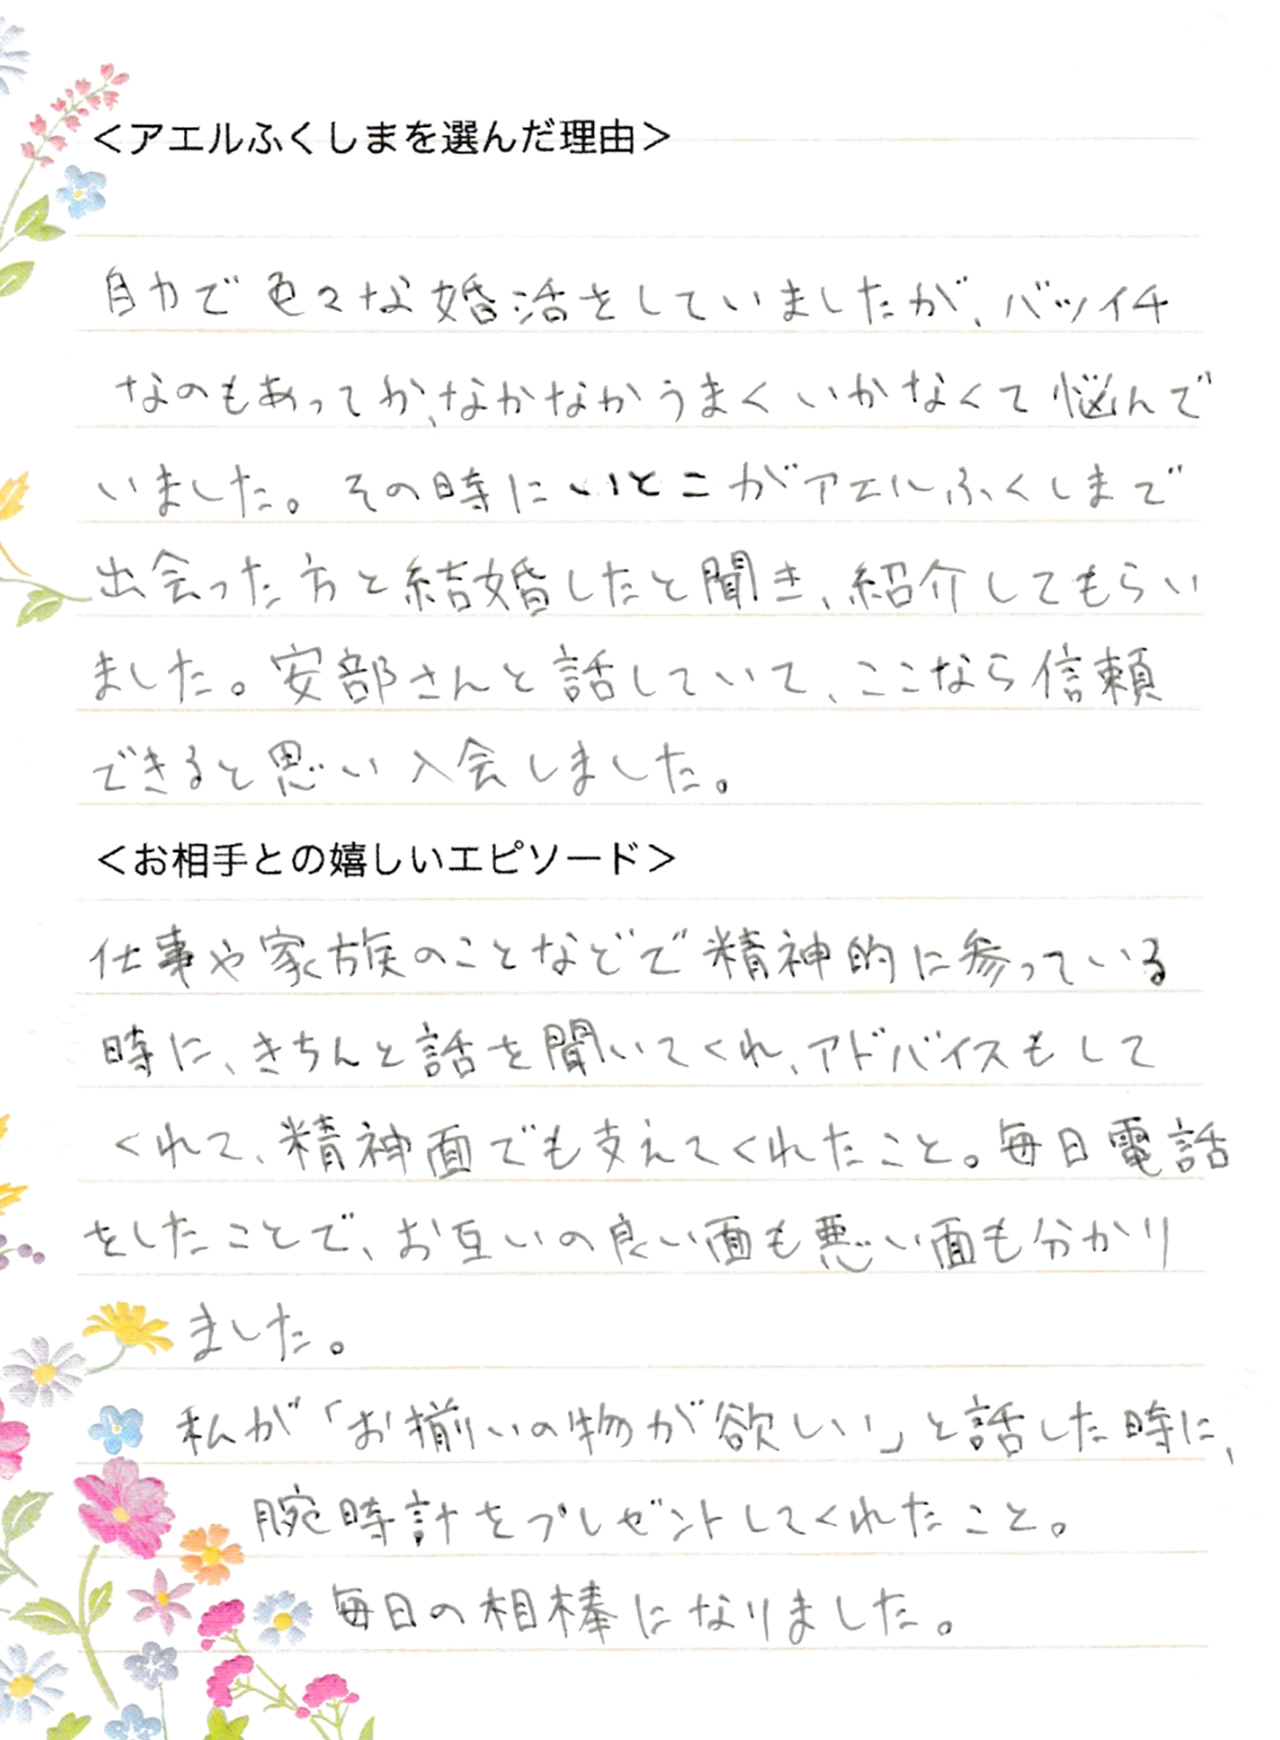 ＜アエルふくしまを選んだ理由＞
自力で色々な婚活をしていましたが、バツイチ
なのもあってか、なかなかうまくいかなくて悩んで
いました。その時にいとこがアエルふくしまで
出会った方と結婚したと聞き、紹介してもらい
ました。安部さんと話していて、ここなら信頼
できると思い入会しました。
＜お相手との嬉しいエピソード＞
仕事や家族のことなどで精神的に参っている
時に、きちんと話を聞いてくれ、アドバイスもして
くれて、精神面でも支えてくれたこと。毎日電話
をしたことで、お互いの良い面も悪い面も分かり
ました。
私が「お揃いの物が欲しい」と話した時に、
腕時計をプレゼントしてくれたこと。
毎日の相棒になりました。